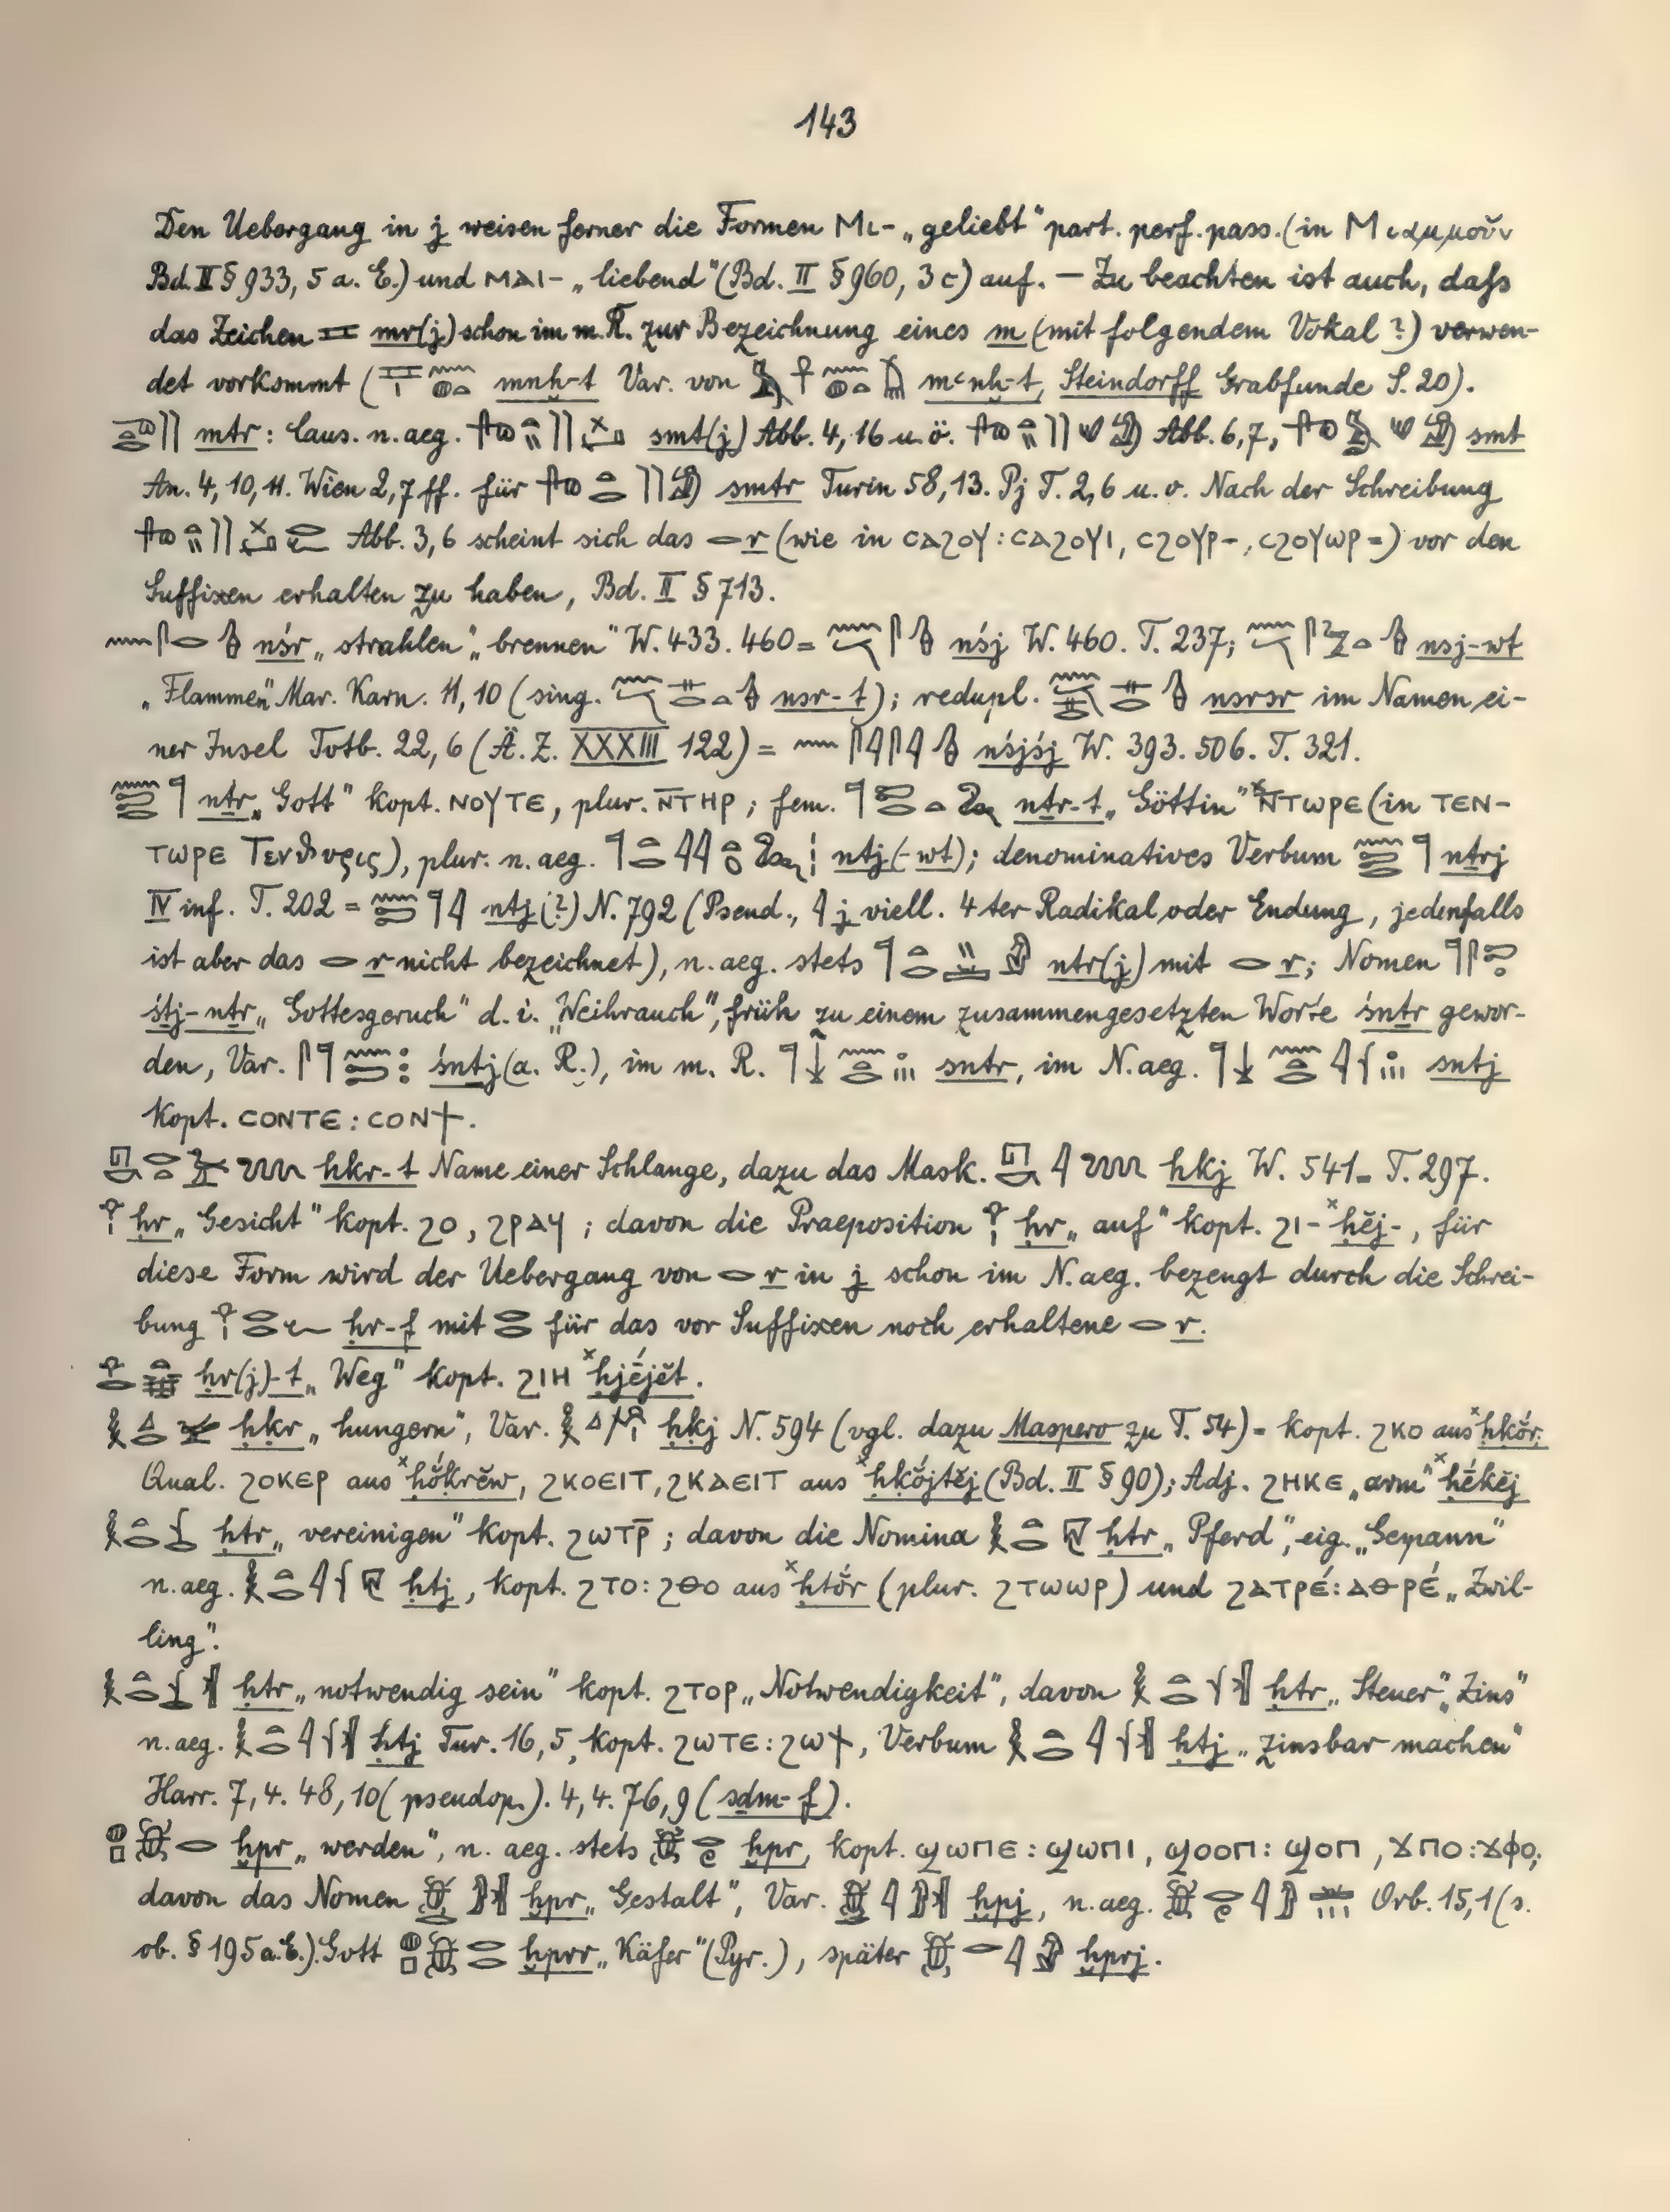 143
Den Uebergang in j weisen ferner die Formen Μι- „geliebt“ part. perf. pass. (in Μιαμμοῦν
Bd. II § 933, 5 a. E.) und ⲙⲁⲓ- „liebend“ (Bd. II § 960, 3c) auf. — Zu beachten ist auch, daſs
das Zeichen mr(j) schon im m. R. zur Bezeichnung eines m (mit folgendem Vokal?) verwen-
det vorkommt ( mnḫ-t Var. von mꜥnḫ-t, Steindorff Grabfunde S. 20).
mtr: Caus. n. aeg. smt(j) Abb. 4, 16 u. ö. Abb. 6, 7, smt
An. 4, 10, 11. Wien 2, 7 ff. für smtr Turin 58, 13. Pj T. 2, 6 u. o. Nach der Schreibung
Abb. 3, 6 scheint sich das r (wie in ⲥⲁϩⲟⲩ : ⲥⲁϩⲟⲩⲓ, ⲥϩⲟⲩⲣ-, ⲥϩⲟⲩⲱⲣ=) vor den
Suffixen erhalten zu haben, Bd. II § 713.
nśr „strahlen“ „brennen“ W. 433. 460 = nśj W. 460. T. 237; nsj-wt
„Flammen“ Mar. Karn. 11, 10 (sing. nsr-t); redupl. nsrsr im Namen ei-
ner Insel Totb. 22, 6 (Ä. Z. XXXIII 122) = nśjśj W. 393. 506. T. 321.
nṯr „Gott“ kopt. ⲛⲟⲩⲧⲉ, plur. ⲛ̅ⲧⲏⲣ; fem. nṯr-t „Göttin“ ˣⲛ̅ⲧⲱⲣⲉ (in ⲧⲉⲛ-
ⲧⲱⲣⲉ Τενθυρις), plur. n. aeg. ntj(-wt); denominatives Verbum nṯrj
IV inf. T. 202 = nṯj(?) N. 792 (Pseud., j viell. 4ter Radikal oder Endung, jedenfalls
ist aber das r nicht bezeichnet), n. aeg. stets ntr(j) mit r; Nomen
śṯj-nṯr „Gottesgeruch“ d. i. „Weihrauch“, früh zu einem zusammengesetzten Worte śnṯr gewor-
den, Var. śnṯj (a. R.), im m. R. sntr, im N. aeg. sntj
kopt. ⲥⲟⲛⲧⲉ : ⲥⲟⲛϯ.
hkr-t Name einer Schlange, dazu das Mask. hkj W. 541 = T. 297.
ḥr „Gesicht“ kopt. ϩⲟ, ϩⲣⲁⲩ; davon die Praeposition ḥr „auf“ kopt. ϩⲓ- ˣḥĕj-, für
diese Form wird der Uebergang von r in j schon im N. aeg. bezeugt durch die Schrei-
bung ḥr-f mit für das vor Suffixen noch erhaltene r.
ḥr(j)-t „Weg“ kopt. ϩⲓⲏ ˣḥjéjĕt.
ḥkr „hungern“, Var. ḥkj N. 594 (vgl. dazu Maspero zu T. 54) = kopt. ϩⲕⲟ aus ˣḥkŏ́r.
Qual. ϩⲟⲕⲉⲣ aus ˣḥŏ́krĕw, ϩⲕⲟⲉⲓⲧ, ϩⲕⲁⲉⲓⲧ aus ˣḥkŏ́jtĕj (Bd. II § 90); Adj. ϩⲏⲕⲉ „arm“ ˣḥékĕj
ḥtr „vereinigen“ kopt. ϩⲱⲧⲣ̅; davon die Nomina ḥtr „Pferd“, eig. „Gespann“
n. aeg. ḥtj, kopt. ϩⲧⲟ : ϩⲑⲟ aus ˣḥtŏ́r (plur. ϩⲧⲱⲱⲣ) und ϩⲁⲧⲣⲉ́ : ⲁⲑⲣⲉ́ „Zwil-
ling“.
ḥtr „notwendig sein“ kopt. ϩⲧⲟⲣ „Notwendigkeit“, davon ḥtr „Steuer“ „Zins“
n. aeg. ḥtj Tur. 16, 5, kopt. ϩⲱⲧⲉ : ϩⲱϯ, Verbum ḥtj „zinsbar machen“
Harr. 7, 4. 48, 10 (pseudop.). 4, 4. 76, 9 (sḏm-f).
ḫpr „werden“, n. aeg. stets ḫpr, kopt. ϣⲱⲡⲉ : ϣⲱⲡⲓ, ϣⲟⲟⲡ : ϣⲟⲡ, ϫⲡⲟ : ϫⲫⲟ;
davon das Nomen ḫpr „Gestalt“, Var. ḫpj, n. aeg. Orb. 15, 1 (s.
ob. § 195 a. E.). Gott ḫprr „Käfer“ (Pyr.), später ḫprj.